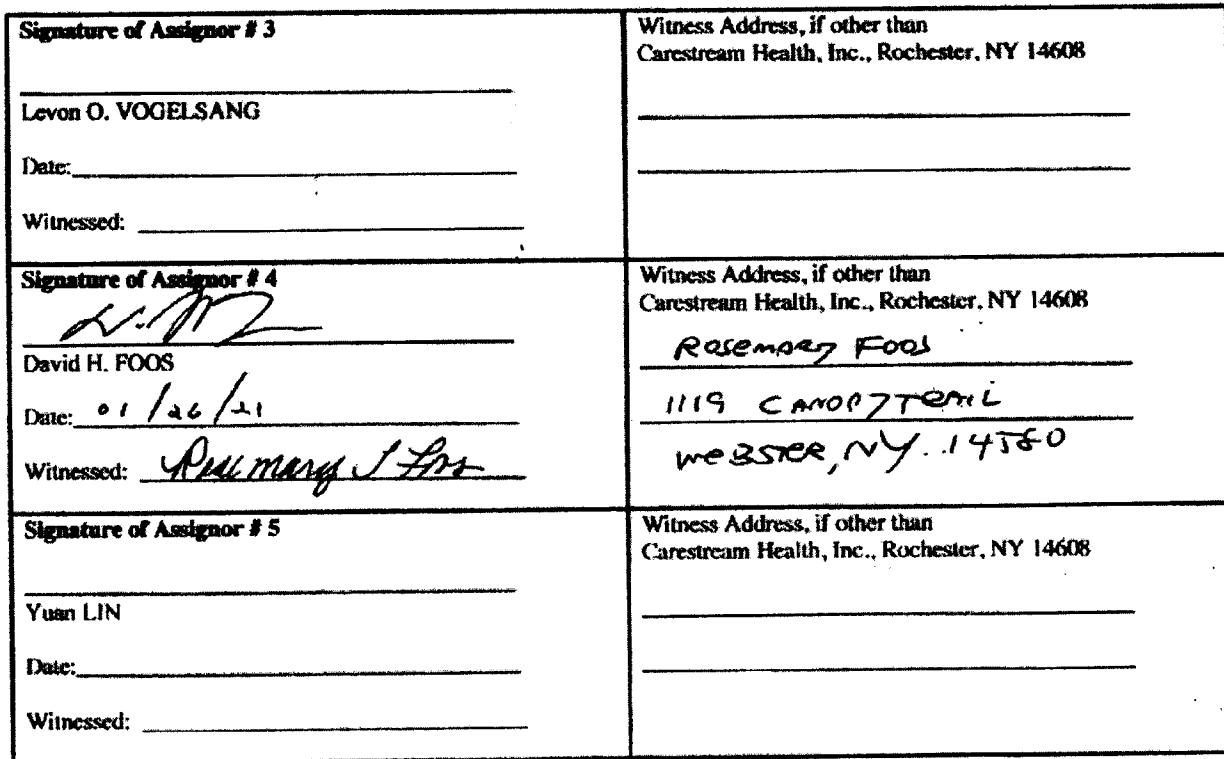 Signature of Assignor # 3
Levon O. VOGELSANG
Date:
Witnessed:
Witness Address, if other than
Carestream Health, Inc., Rochester, NY 14608
Signature of Assignor # 4
David H. FOOS
Date: 01/26/21
Witnessed: Rosemary J Foos
Witness Address, if other than
Carestream Health, Inc., Rochester, NY 14608
Rosemary Foos
1119 CANOPY TRAIL
WEBSTER, NY. 14580
Signature of Assignor # 5
Yuan LIN
Date:
Witnessed:
Witness Address, if other than
Carestream Health, Inc., Rochester, NY 14608